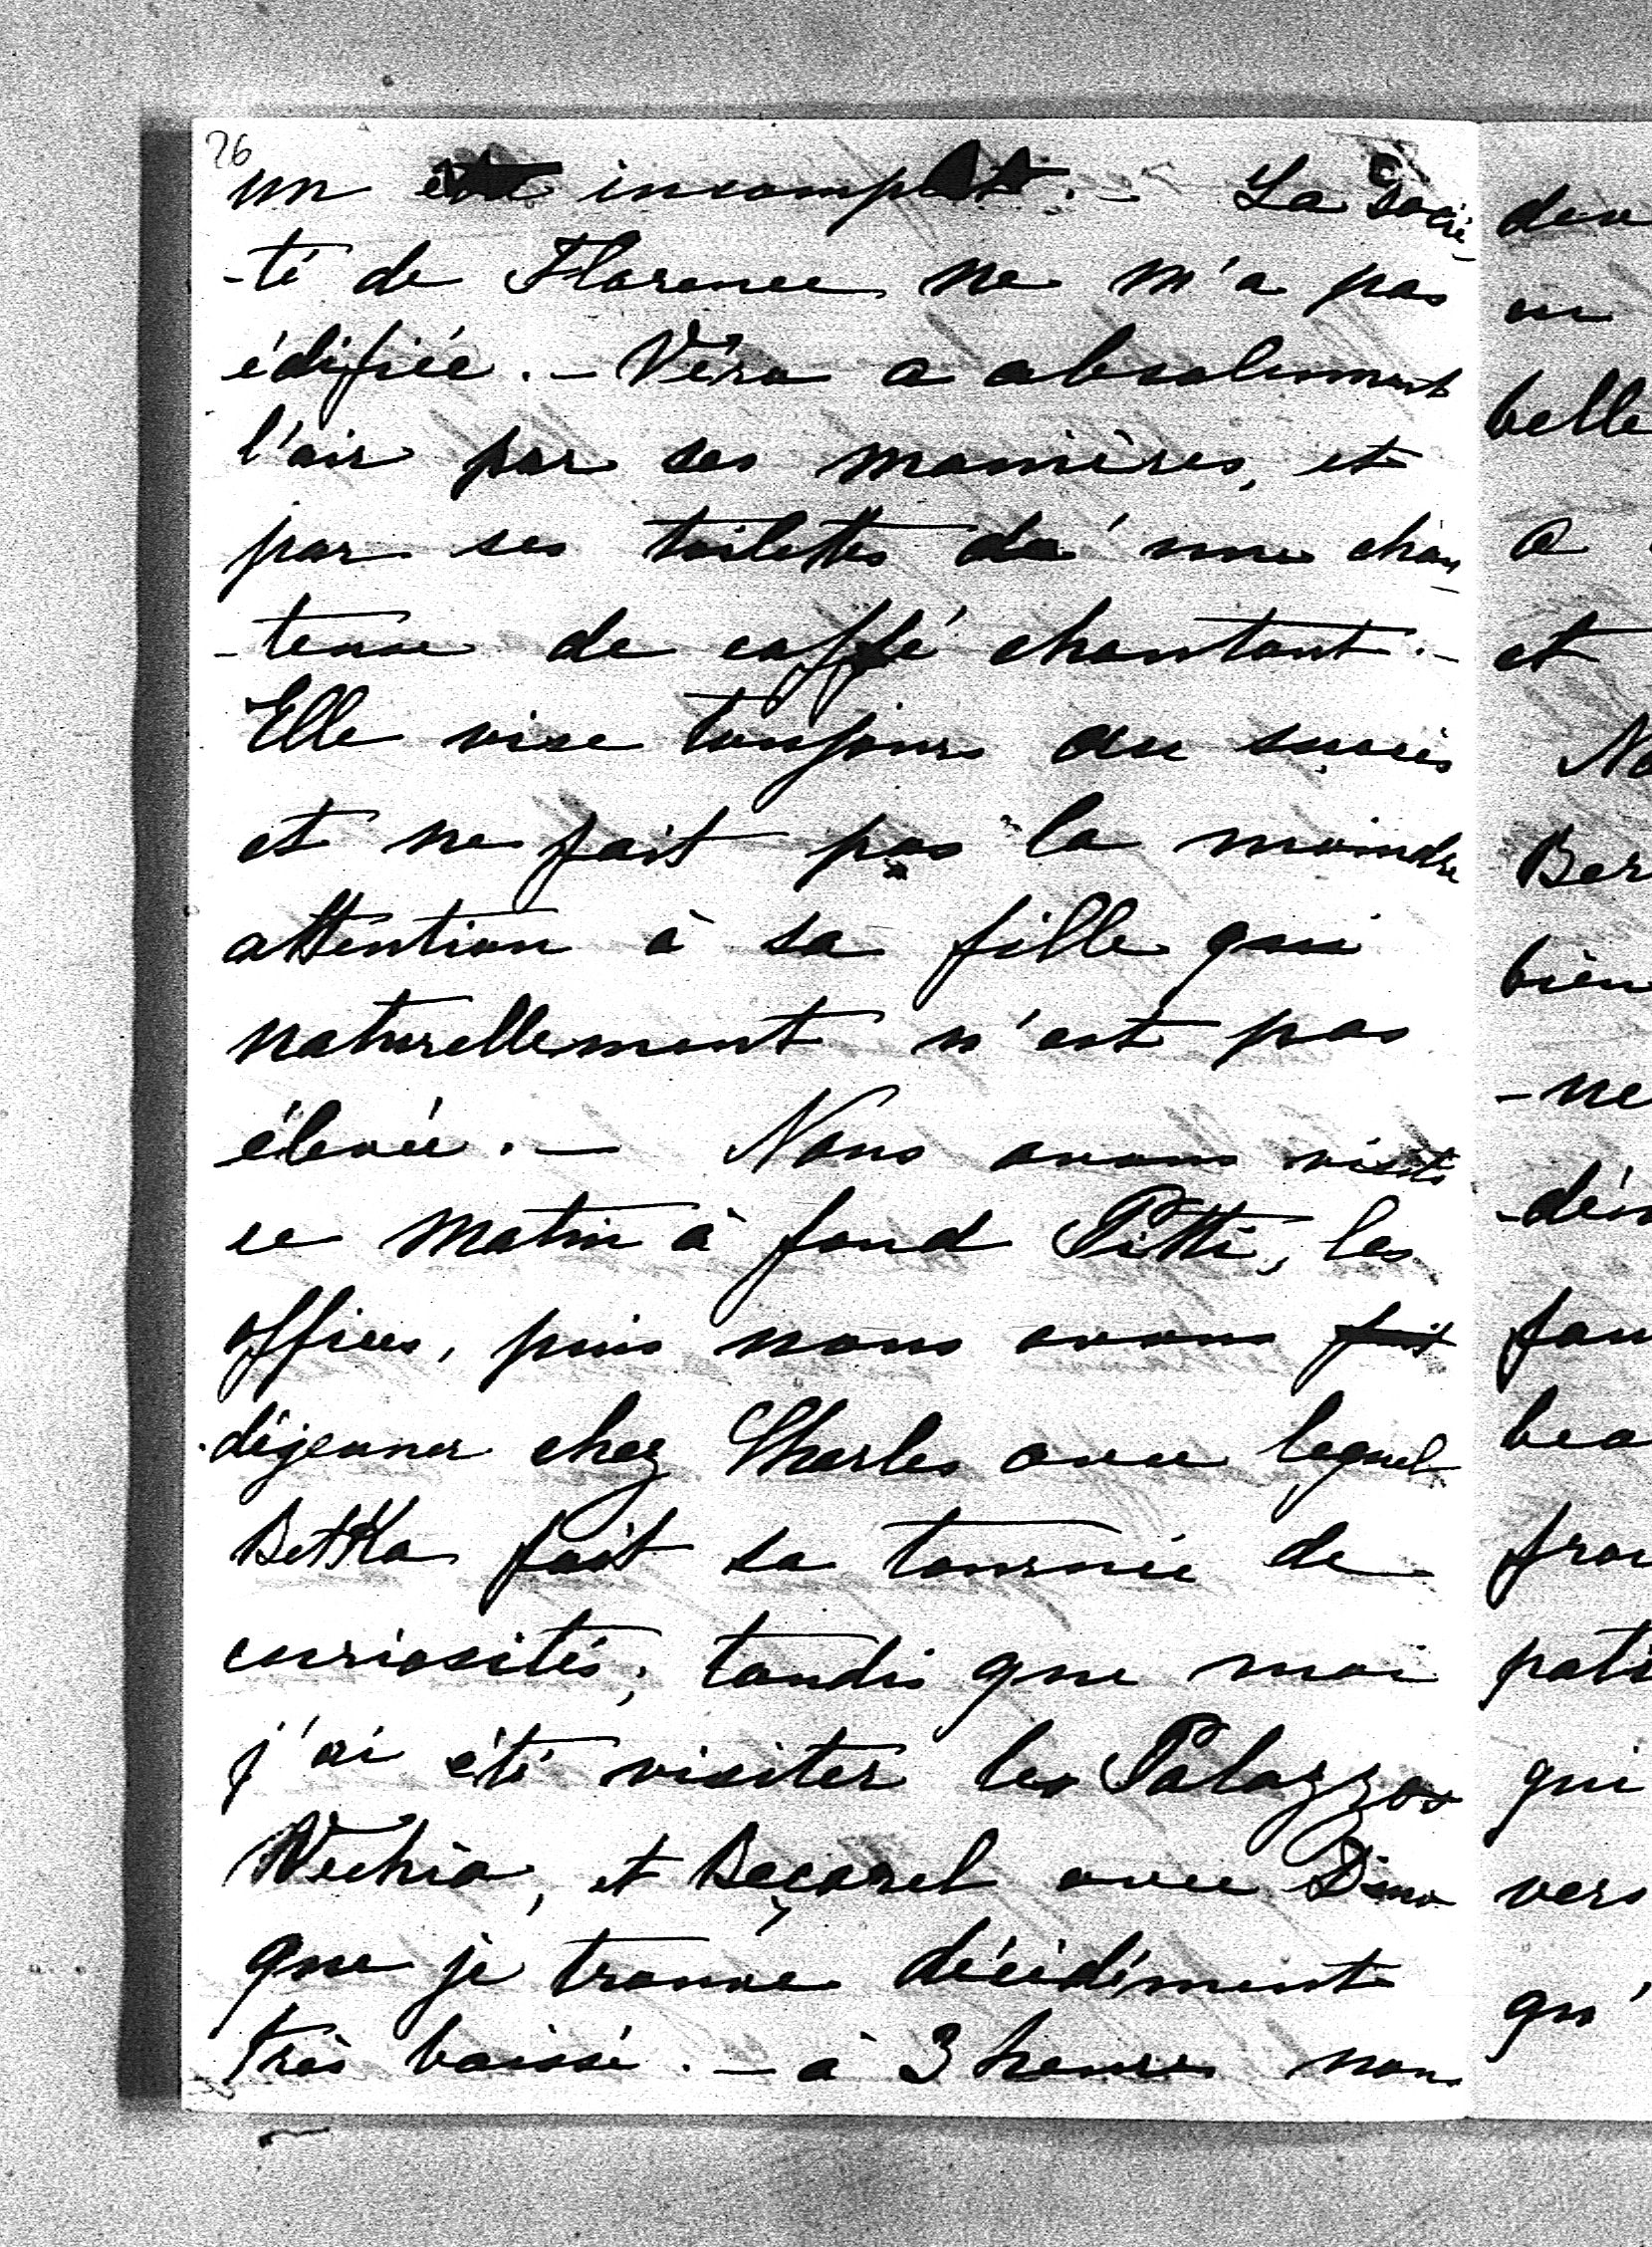 26
un être incomplet. - La Socié
-té de Florence ne m'a pas
édifiée. - Véra a absolument
l'air par ses manières, et
par ses toilettes d'une chan
-teuse de caffé chantant. -
Elle vise toujours au succès
et ne fait pas la moindre
attention à sa fille qui
naturellement n'est pas
élevée. - Nous avons visité
ce matin à fond Pitti, les
offices, puis nous avons fait
déjeuner chez Charles avec lequel
Betka fait sa tournée de
curiosités; tandis que moi
j'ai été visiter les Palazzos
Vechio, et avec Dino
que je trouve décidément
très baissé. - à 3 heures nous
den
en
belle
a
et
No
Ber
bien
-ne
-dém
fau
bea
frou
pati
qui
vers
qu'